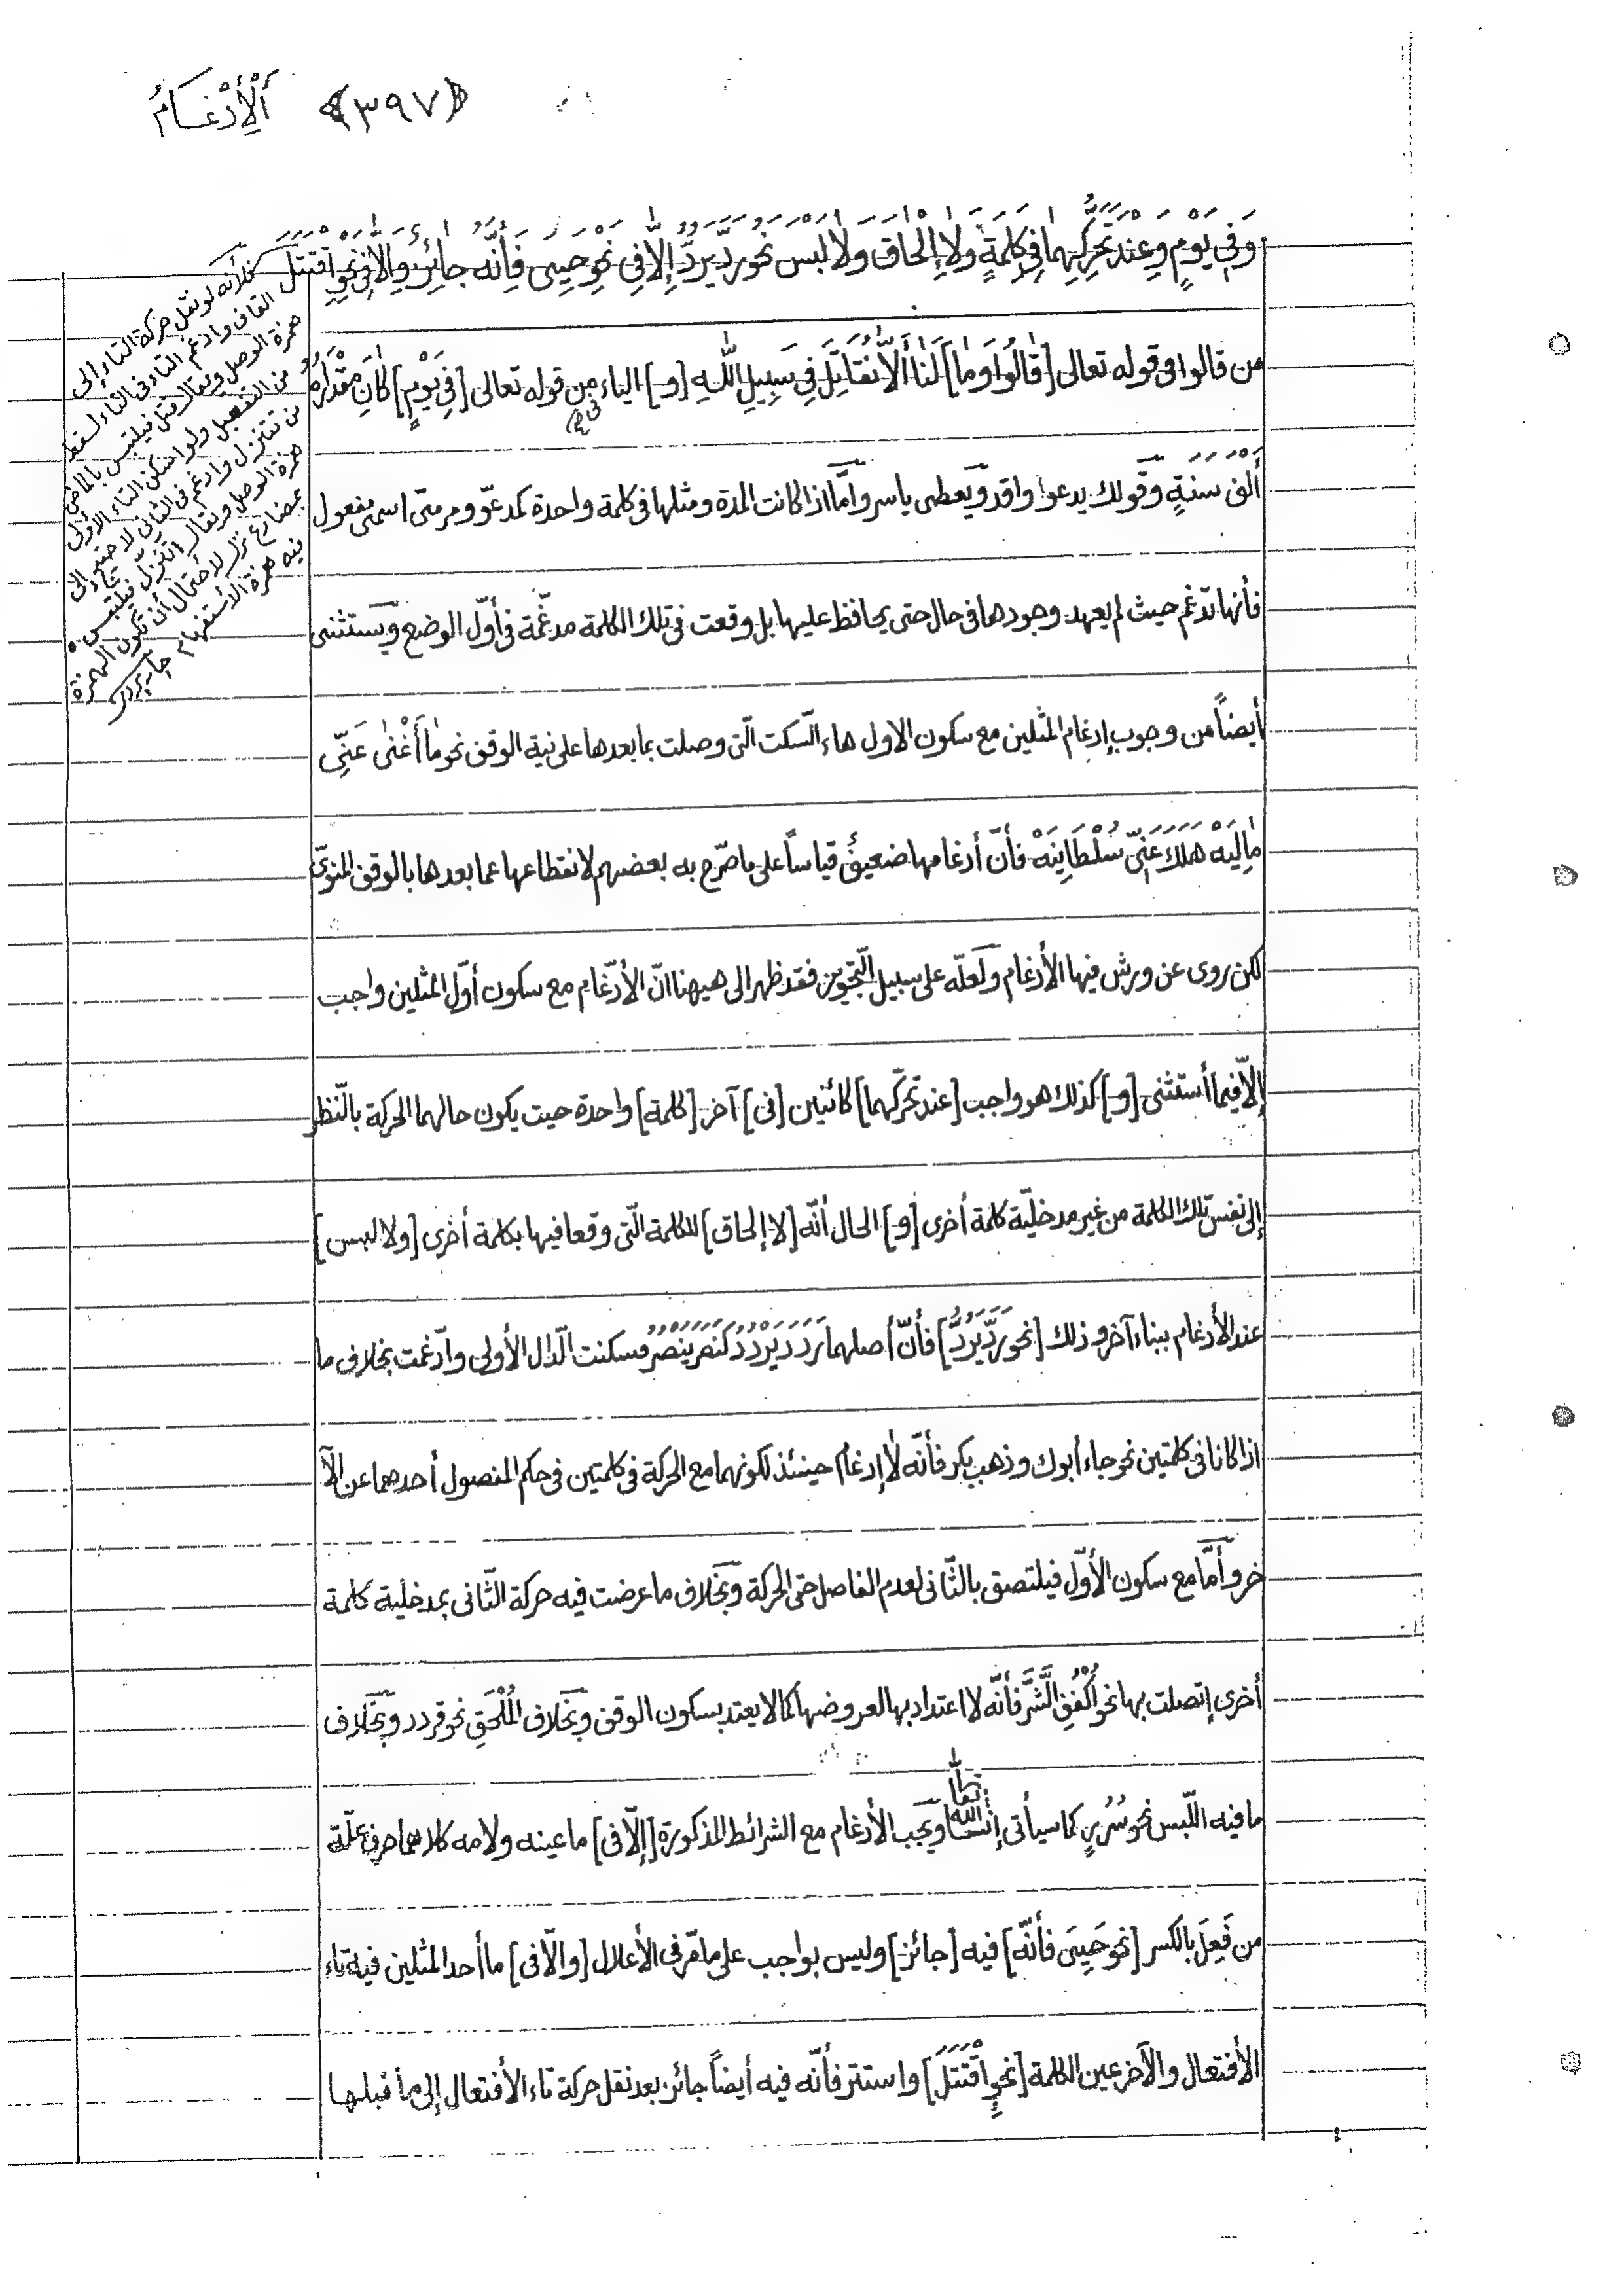 ﴿٣٩٧﴾ اَلْإِدْغَامُ
وَفِي يَوْمٍ وَعِنْدَ تَحَرُّكِهِمَا فِي كَلِمَةٍ وَلَا إِلْحَاقَ وَلَا لَبْسَ نَحْوُ رَدَّ يَرُدُّ إِلَّا فِي نَحْوِ حَيِيَ فَإِنَّهُ جَائِزٌ وَإِلَّا فِي نَحْوِ اقْتَتَلَ
من قالوا فى قوله تعالى [قَالُوا وَمَا] لَنَا أَلَّا نُقَاتِلَ فِي سَبِيلِ اللّٰهِ [و] الياء من فى فى قوله تعالى [فِي يَوْمٍ] كَانَ مِقْدَارُهُ
أَلْفَ سَنَةٍ وقولك يدعوا واقد ويعطى ياسر وأمّا اذا كانت المدة ومثلها فى كلمة واحدة كمدعوّ ومرمىّ اسمى مفعول
فأنها تدّغم حيث لم يعهد وجودهما فى حال حتى يحافظ عليها بل وقعت فى تلك الكلمة مدغّمة فى أوّل الوضع ويستثنى
أيضاً من وجوب إدغام المثلين مع سكون الاول هاء السّكت الّتى وصلت بما بعدها على نية الوقف نحو مٰا أَغْنٰى عَنِّي
مٰالِيَهْ هَلَكَ عَنِّي سُلْطَانِيَهْ فأنّ أدغامها ضعيفٌ قياساً على ما صرّح به بعضهم لانقطاعها عما بعدها بالوقف المنوىّ
لكن روى عن ورش فيها الأدغام ولعلّه على سبيل التّجويز فقد ظهر الى هيهنا انّ الأدّغام مع سكون أوّل المثلين واجب
إلاّ فيما أستثنى [و] كذلك هو واجب [عند تحرّكهما] كائنين [فى] آخر [كلمة] واحدة حيت يكون حالهما الحركة بالنّظر
إلى نفس تلك الكلمة من غير مدخليّة كلمة أخرى [و] الحال أنّه [لا إلحاق] للكلمة الّتى وقعا فيها بكلمة أخرى [ولا لبس]
عند الأدغام ببناء آخر وذلك [نحو رَدَّ يَرُدُّ] فأنّ أصلهما رَدَدَ يَرْدُدُ كَنَصَرَ يَنْصُرُ فسكنت الّدال الأولى وادّغمت بخلاف ما
اذا كانا فى كلمتين نحو جاء أبوك وذهب بكر فأنّه لا إدغام حينئذ لكونهما مع الحركة فى كلمتين فى حكم المنصول أحدهما عن الآ
خر وأمّا مع سكون الأوّل فيلتصق بالثّانى لعدم الفاصل حتى الحركة وبخلاف ما عرضت فيه حركة الثّانى بمدخلية كلمة
أخرى إتصلت بها نحو أُكْفُفِ الشَّرَّ فأنّه لا اعتداد بها لعروضها كما لا يعتد بسكون الوقف وبخلاف المُلْحَقِ نحو قردد وبخلاف
ما فيه اللّبس نحو سُرُرٍ كما سيأتى إنشاء الله تعالى ويجب الأدغام مع الشرائط المذكورة [إلّا فى] ما عينه ولامه كلاهما حرف علّة
من فَعِلَ بالكسر [نحو حَيِىَ فأنّه] فيه [جائز] وليس بواجب على ما مرّ فى الأعلال [والّا فى] ما أحد المثلين فيه تاء
الأفتعال والآخر عين الكلمة [نحوِ اقْتَتَلَ] واستتر فأنّه فيه أيضاً جائز بعد نقل حركة تاء الأفتعال إلى ما قبلها
لأنّه لو نقل حركة التاء إلى
القاف وادغم التاء فى التاء لسقط
همزة الوصل ويقال قتل فيلتبس بالماضى
من التفعيل ولو اسكن التاء الأولى
من تتنزل وادغم فى الثانى لاحتيج الى
همزة الوصل ويقال اتّنزل فيلتبس
بمضارع نزل لاحتمال أن تكون الهمزة
فيه همزة الأستفهام جاربردى